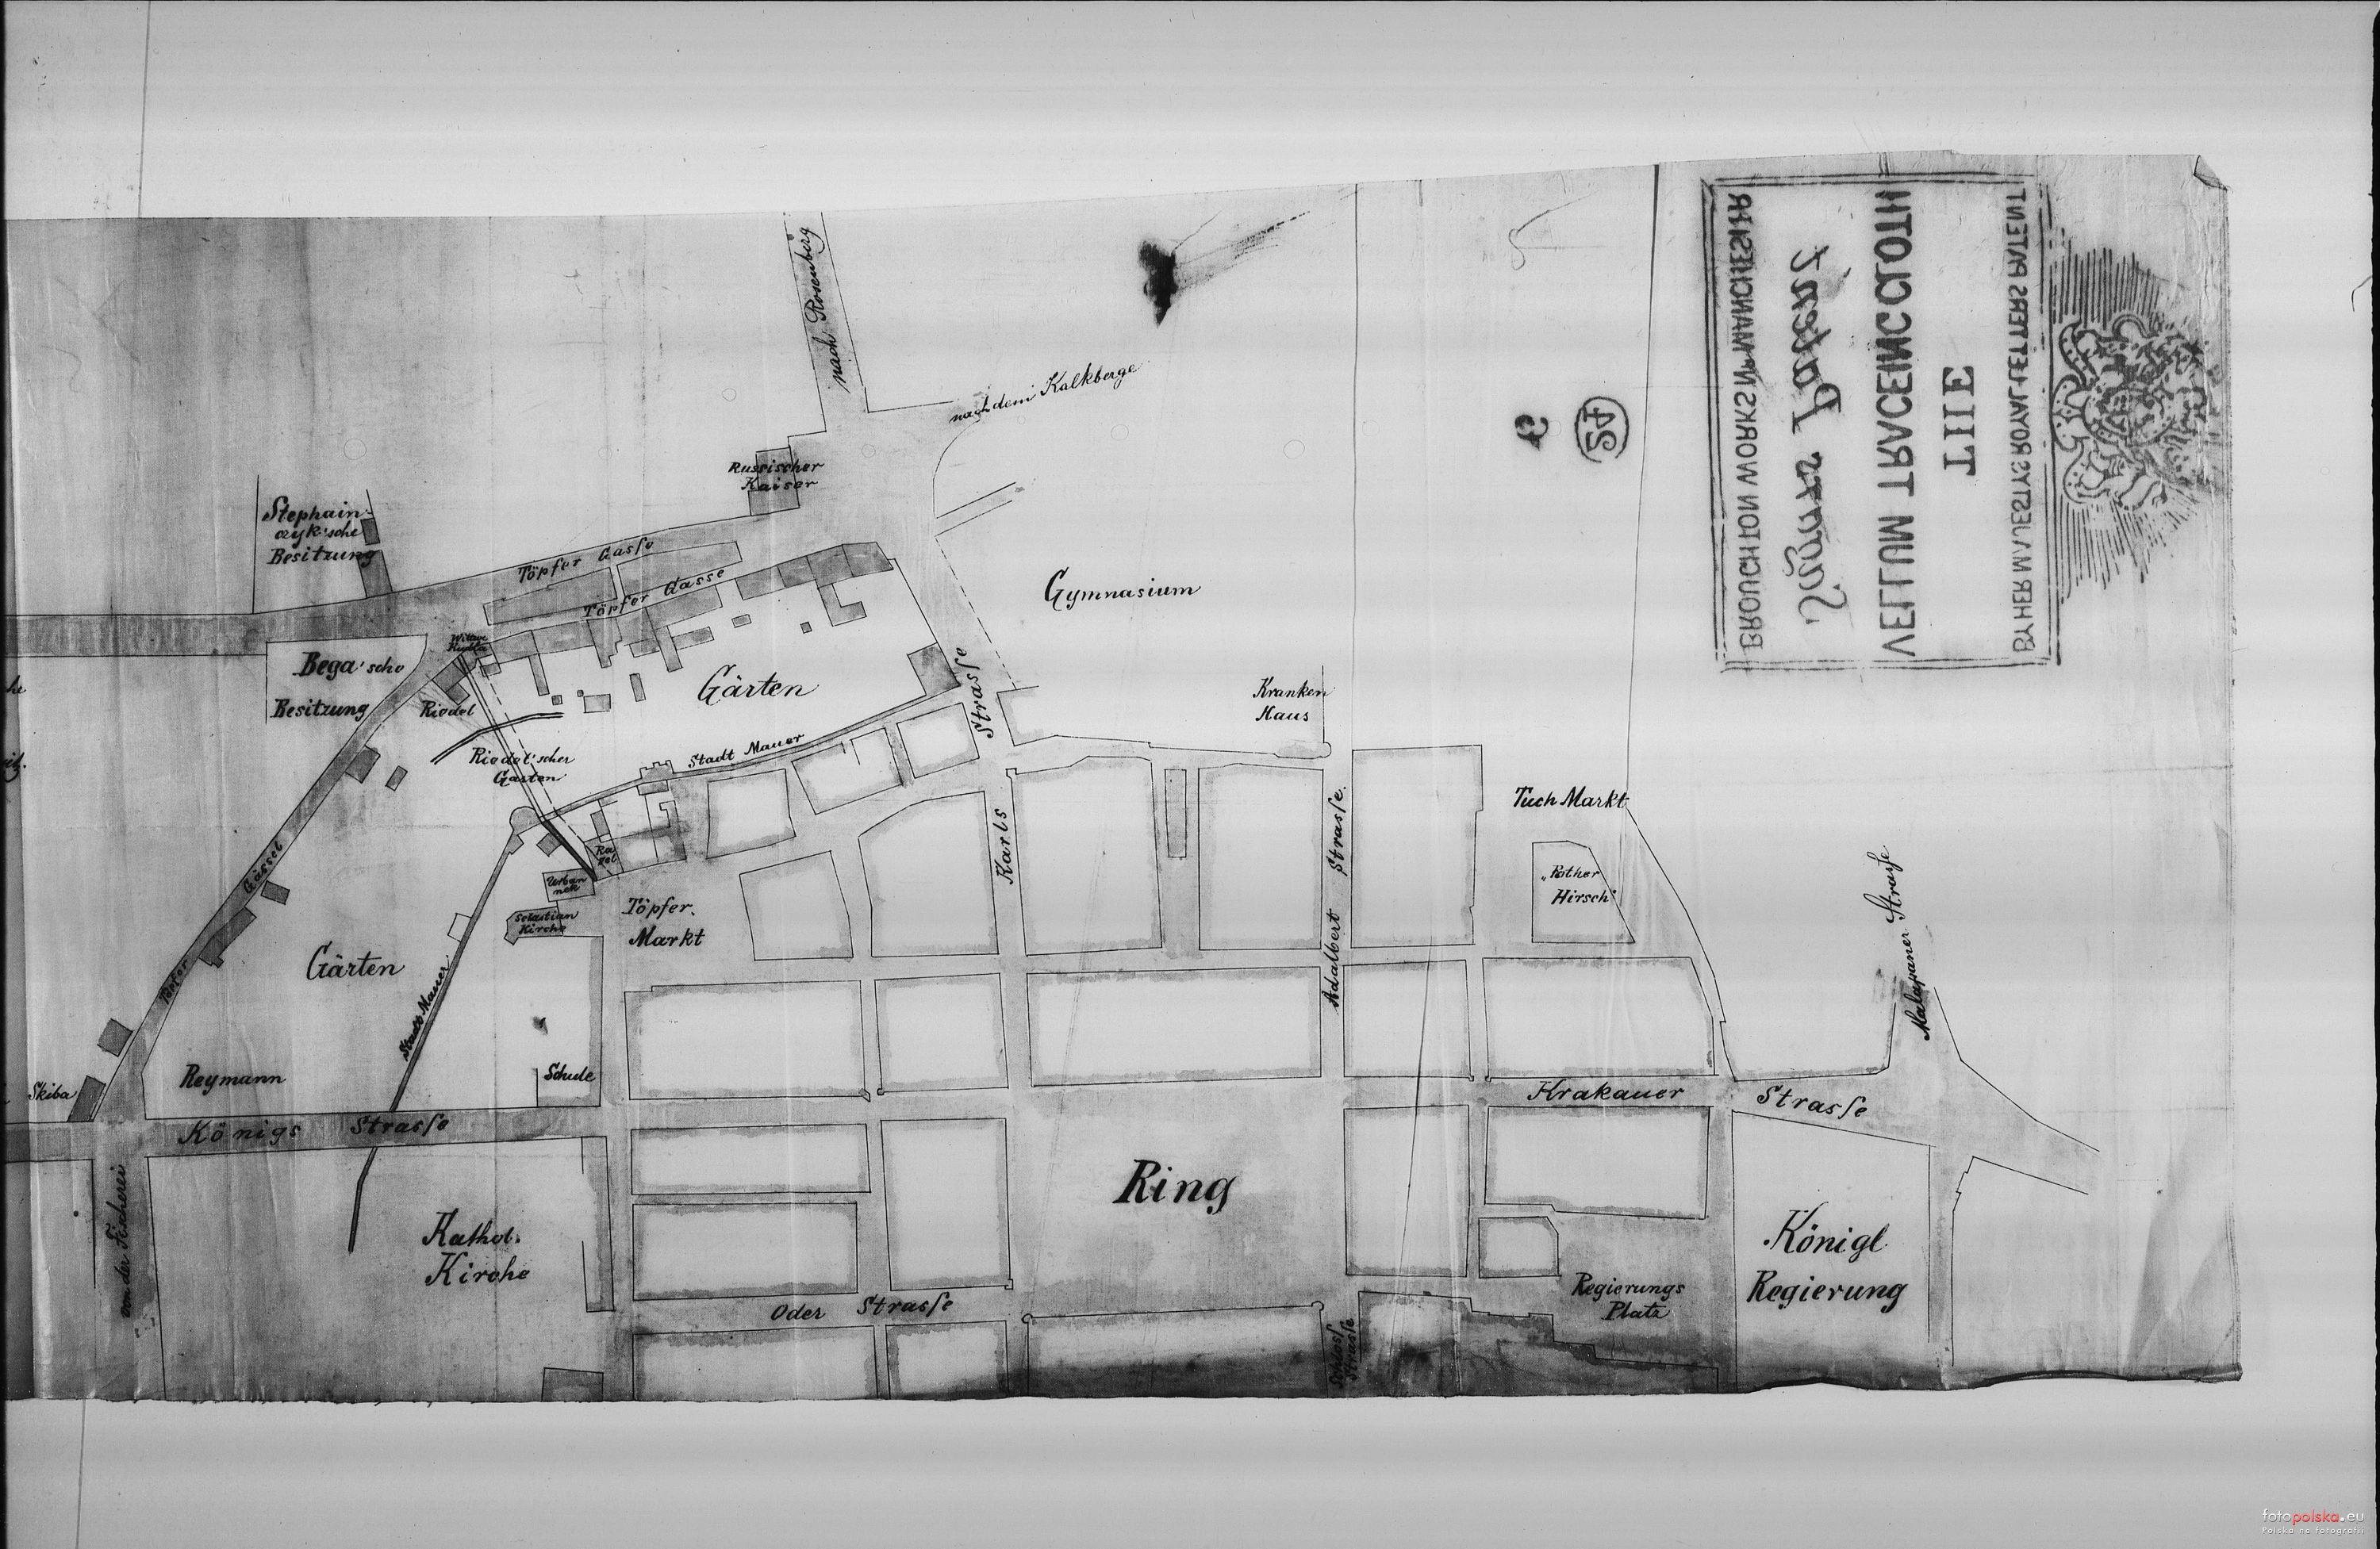 nach Rosenberg
nach dem Kalkberge
Russischer
Kaiser
Besitzung
Töpfer Gasse
Töpfer Gasse
Gymnasium
Wittwe
Bega'sche
Besitzung
Riedel
Gärten
Strasse
Kranken
Haus
Riedel'scher
Garten
Stadt Mauer
Tuch Markt
Karls
Adalbert Strasse.
"Rother
Hirsch"
Malapaner Strasse
Töpfer
Gässel
Urban
Sebastian
Kirche
Töpfer.
Markt
Gärten
Stadt Mauer
Skiba
Reymann
Schule
Königs Strasse
Krakauer Strasse
von der Fischerei
Kathol.
Kirche
Ring
Königl.
Regierung
Regierungs
Platz
Oder Strasse
Schloss
Strasse
24
BY HER MAJESTYS ROYAL LETTERS PATENT
THE
VELLUM TRACING CLOTH
Sagars Patent
BROUGHTON WORKS Nr MANCHESTER
fotopolska.eu
Polska na fotografii